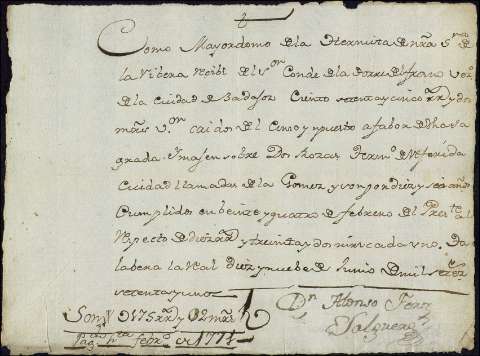 Como Mayordomo de la Hermita de nra Sra de
la Ribera Recibi del Sor Conde de la Torre del fresno vez.
de la ciudad de Badajoz Ciento setenta y cinco RR y dos
mrs Von caidos del Censo ympuesto a fabor de dha Sa
grada Ymajen sobre Dos Rozas termo de Referida
Ciudad llamadas de la Gomez y son por diez y seis años
Cumplidos en beinte y quatro de febrero del Preste al
Respecto de diez RR y treinta y dos mrs cada uno.
la Real diez y nueve de Junio de mil setecs
setenta y uno
Dn Alonso Ferz
Salguero
Son 175 RR y 02 mrs
febro de 1771